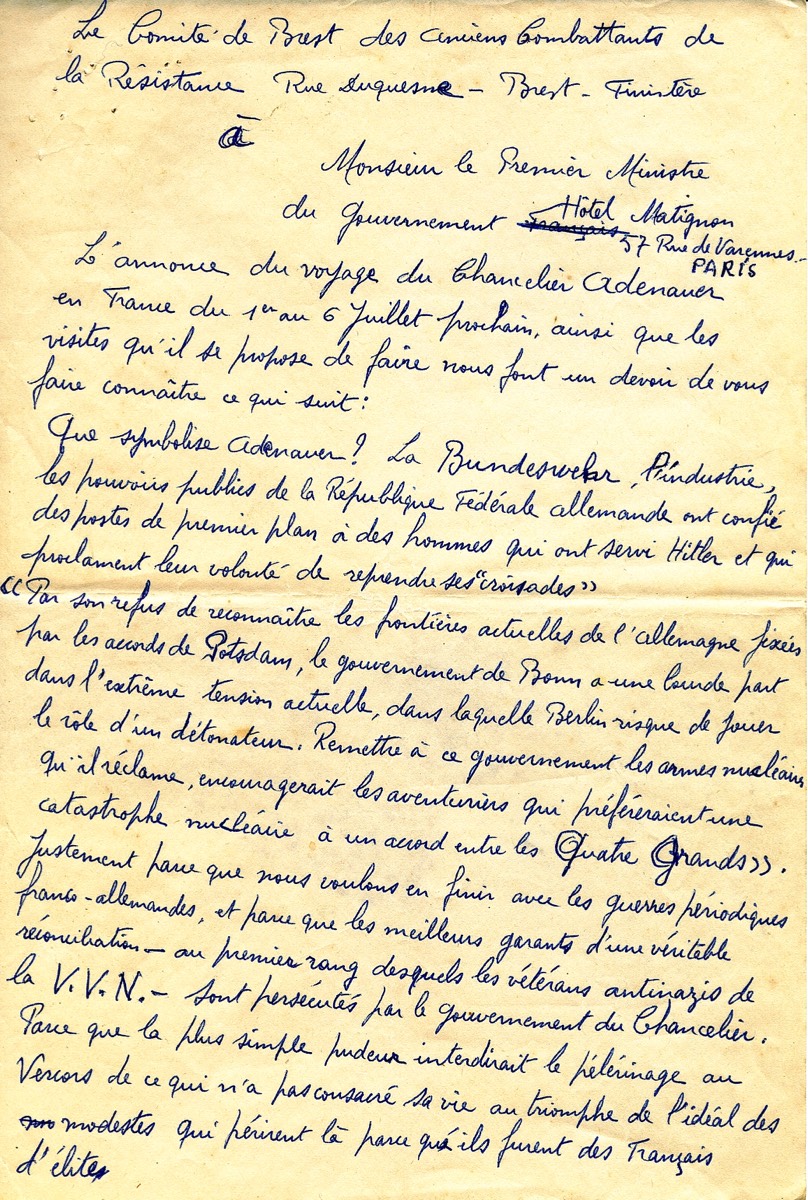 Le Comité de Brest des anciens Combattants de
la Résistance Rue Duquesne - Brest - Finistère
à
Monsieur le Premier Ministre
du Gouvernement français Hôtel Matignon
57 Rue de Varennes
PARIS
L'annonce du voyage du Chancelier Adenauer
en France du 1er au 6 Juillet prochain, ainsi que les
visites qu'il se propose de faire nous font un devoir de vous
faire connaître ce qui suit :
Que symbolise Adenauer ? La Bundeswehr, l'industrie,
les pouvoirs publics de la République Fédérale allemande ont confié
des postes de premier plan à des hommes qui ont servi Hitler et qui
proclament leur volonté de reprendre ses "croisades"
« Par son refus de reconnaître les frontières actuelles de l'allemagne fixées
par les accords de Potsdam, le gouvernement de Bonn a une lourde part
dans l'extrême tension actuelle, dans laquelle Berlin risque de jouer
le rôle d'un détonateur. Remettre à ce gouvernement les armes nucléaires
qu'il réclame, encouragerait les aventuriers qui préféreraient une
catastrophe nucléaire à un accord entre les Quatre Grands ».
Justement parce que nous voulons en finir avec les guerres périodiques
franco-allemandes, et parce que les meilleurs garants d'une véritable
réconciliation - au premier rang desquels les vétérans antinazis de
la V.V.N. - sont persécutés par le gouvernement du Chancelier.
Parce que la plus simple pudeur interdirait le pélérinage au
Vercors de ce qui n'a pas consacré sa vie au triomphe de l'idéal des
modestes qui périrent là parce qu'ils furent des Français
d'élite